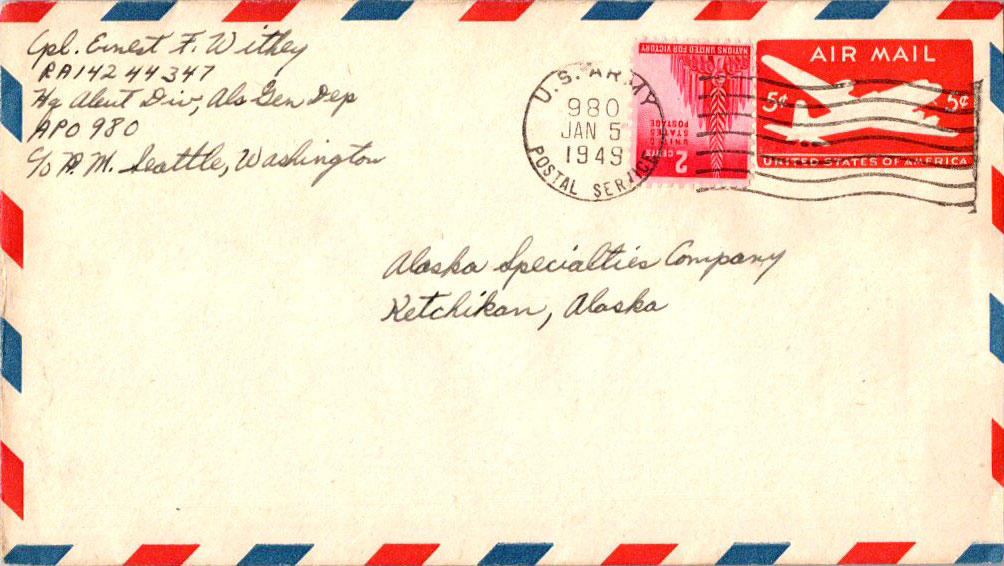 Cpl. Ernest F. Withey
RA14244347
Hq Aleut Div, Als Gen Dep
APO 980
c/o P.M. Seattle, Washington
U.S. ARMY
980
JAN 5
1949
POSTAL SERVICE
NATIONS UNITED FOR VICTORY
UNITED
STATES
POSTAGE
2 CENTS
AIR MAIL
5¢ 5¢
UNITED STATES OF AMERICA
Alaska Specialties Company
Ketchikan, Alaska